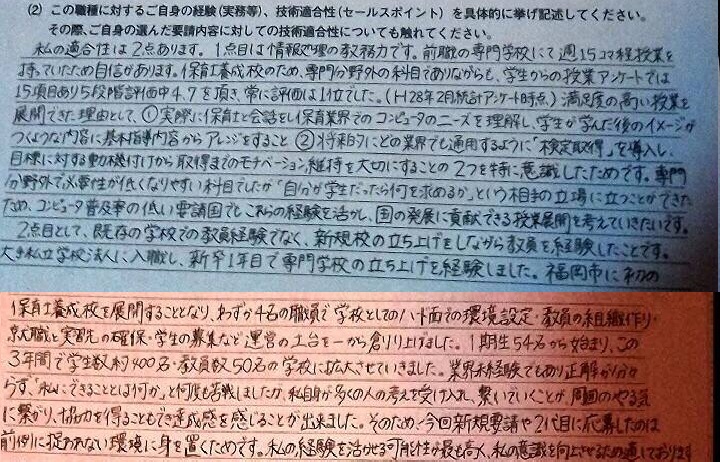 (2) この職種に対するご自身の経験(実務等)、技術適合性(セールスポイント)を具体的に挙げ記述してください。
その際、ご自身の選んだ要請内容に対しての技術適合性についても触れてください。
私の適合性は2点あります。1点目は情報処理の教務力です。前職の専門学校にて週15コマ程授業を
持っていたため自信があります。保育士養成校のため、専門分野外の科目でありながらも、学生からの授業アンケートでは
15項目あり5段階評価中4.7を頂き、常に評価は1位でした。(H28年2月統計アンケート時点。)満足度の高い授業を
展開できた理由として、①実際に保育士と会話をし保育業界でのコンピュータのニーズを理解し、学生が学んだ後のイメージが
つくような内容に基本指導内容からアレンジをすること ②将来的にどの業界でも通用するように"検定取得"を導入し、
目標に対する動機付けから取得までのモチベーション維持を大切にすることの2つを特に意識したためです。専門
分野外で必要性が低くなりやすい科目でしたが"自分が学生だったら何を求めるか"という相手の立場に立つことができた
ため、コンピュータ普及率の低い要請国でもこれらの経験を活かし、国の発展に貢献できる授業展開を考えていきたいです。
2点目として、既存の学校での教員経験でなく、新規校の立ち上げをしながら教員を経験したことです。
大手私立学校法人に入職し、新卒1年目で専門学校の立ち上げを経験しました。福岡市に初の
保育士養成校を展開することとなり、わずか4名の職員で学校としてのハード面での環境設定・教員の組織作り・
就職と実習先の確保・学生の募集など運営の土台を一から創り上げました。1期生54名から始まり、この
3年間で学生数約400名・教員数50名の学校に拡大させていきました。業界未経験でもあり正解が分か
らず、"私にできることは何か"と何度も苦戦しましたが、私自身が多くの人の考えを受け入れ、繋いでいくことが、周囲のやる気
に繋がり、協力を得ることもでき達成感を感じることが出来ました。そのため、今回新規要請や2代目に応募したのは
前例に捉われない環境に身を置くためです。私の経験を活かせる可能性が最も高く、私の意識を向上させるため適しております